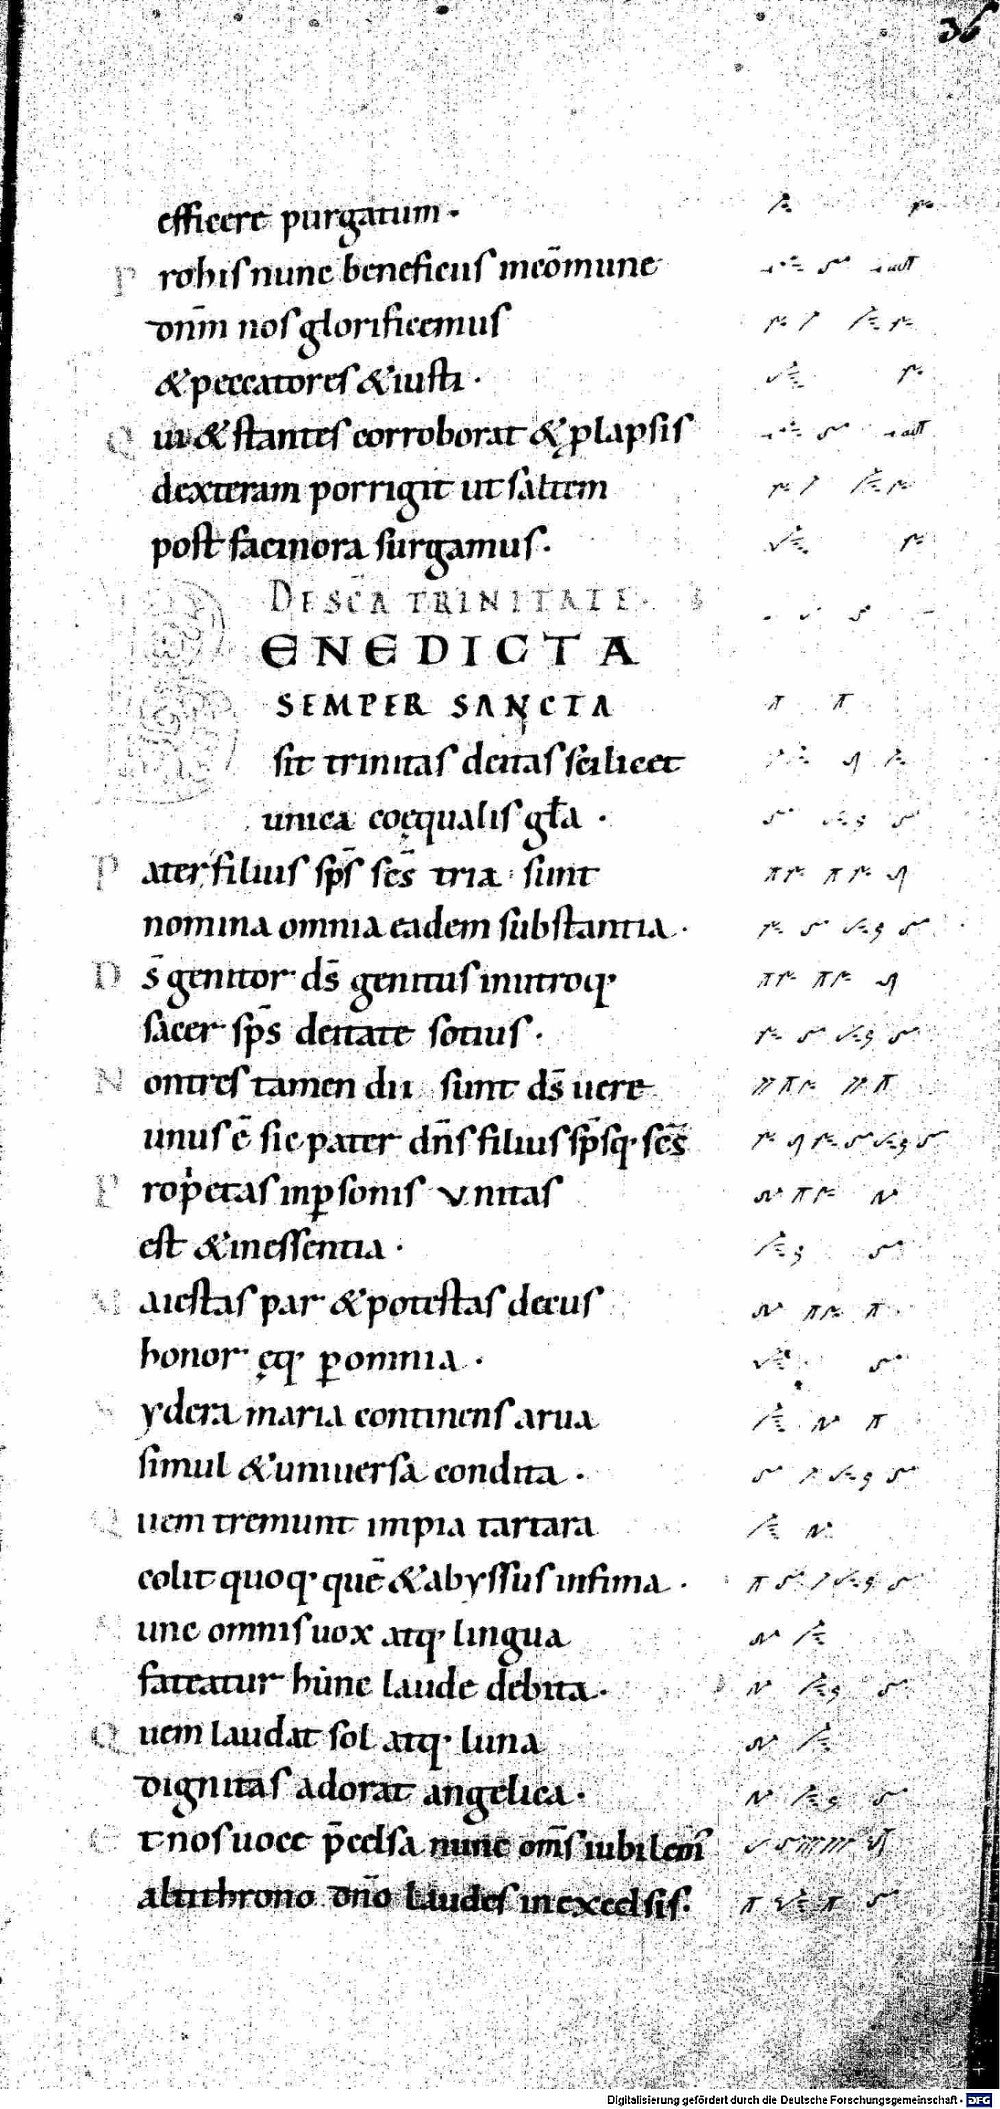 36
efficere purgatum ·
P robis nunc beneficus incōmune
dnm̄ nos glorificemus
& peccatores & iusti ·
Q ui & stantes corroborat & plapsis
dexteram porrigit ut saltem
post facinora surgamus ·
DE SCĀ TRINITATE ·
ENEDICTA
SEMPER SANCTA
sit trinitas deitas scilicet
unica coęqualis gła ·
P ater filius sps̄ scs̄ tria sunt
nomina omnia eadem substantia ·
D s̄ genitor ds̄ genitus inutroq·
sacer sps̄ deitate sotius ·
N on tres tamen dii sunt ds̄ uere
unus ē sic pater dn̄s filius sps̄q· scs̄
P roprietas inpsonis Vnitas
est & inessentia ·
M aiestas par & potestas decus
honor ęq· p omnia ·
S ydera maria continens arua
simul & uniuersa condita ·
Q uem tremunt impia tartara
colit quoq· quē & abyssus infima ·
N unc omnis uox atq· lingua
fateatur hunc laude debita ·
Q uem laudat sol atq· luna
dignitas adorat angelica ·
E t nos uoce p̄celsa nunc om̄s iubilem̄
altithrono dn̄o laudes inexcelsis ·
Digitalisierung gefördert durch die Deutsche Forschungsgemeinschaft · DFG